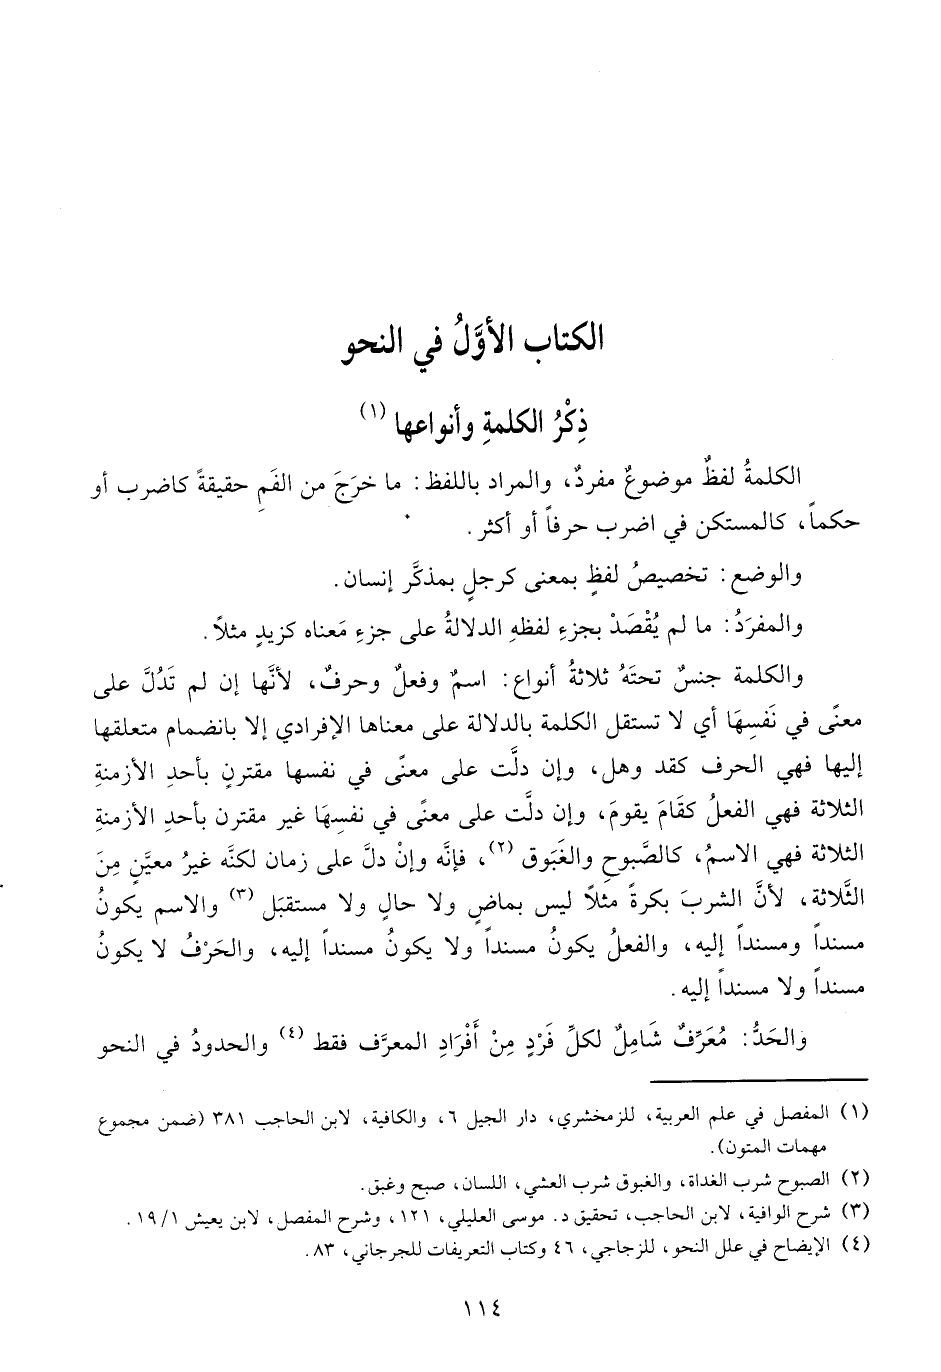 الكتاب الأوَّلُ في النحو
ذِكْرُ الكلمةِ وأنواعها (١)
الكلمةُ لفظٌ موضوعٌ مفردٌ، والمراد باللفظ: ما خرَجَ من الفَمِ حقيقةً كاضرب أو
حكماً، كالمستكن في اضرب حرفاً أو أكثر.
والوضع: تخصيصُ لفظٍ بمعنى كرجلٍ بمذكَّر إنسان.
والمفرَدُ: ما لم يُقْصَدْ بجزءِ لفظهِ الدلالةُ على جزءِ مَعناه كزيدٍ مثلاً.
والكلمة جنسٌ تحتَهُ ثلاثةُ أنواع: اسمٌ وفعلٌ وحرفٌ، لأنَّها إن لم تَدُلَّ على
معنًى في نَفسِهَا أي لا تستقل الكلمة بالدلالة على معناها الإفرادي إلا بانضمام متعلقها
إليها فهي الحرف كقد وهل، وإن دلَّت على معنًى في نفسها مقترنٍ بأحدِ الأزمنةِ
الثلاثة فهي الفعلُ كقَامَ يقومَ، وإن دلَّت على معنًى في نفسِهَا غير مقترن بأحدِ الأزمنةِ
الثلاثة فهي الاسمُ، كالصَّبوحِ والغَبَوق (٢)، فإنَّه وإنْ دلَّ على زمان لكنَّه غيرُ معيَّنٍ مِنَ
الثَّلاثة، لأنَّ الشربَ بكرةً مثلاً ليس بماضٍ ولا حالٍ ولا مستقبَل (٣) والاسم يكونُ
مسنداً ومسنداً إليه، والفعلُ يكونُ مسنداً ولا يكونُ مسنداً إليه، والحَرْفُ لا يكونُ
مسنداً ولا مسنداً إليه.
والحَدُّ: مُعَرِّفٌ شَامِلٌ لكلِّ فَرْدٍ مِنْ أَفْرَادِ المعرَّف فقط (٤) والحدودُ في النحو
(١) المفصل في علم العربية، للزمخشري، دار الجيل ٦، والكافية، لابن الحاجب ٣٨١ (ضمن مجموع
مهمات المتون).
(٢) الصبوح شرب الغداة، والغبوق شرب العشي، اللسان، صبح وغبق.
(٣) شرح الوافية، لابن الحاجب، تحقيق د. موسى العليلي، ١٢١، وشرح المفصل، لابن يعيش ١٩/١.
(٤) الإيضاح في علل النحو، للزجاجي، ٤٦ وكتاب التعريفات للجرجاني، ٨٣.
١١٤